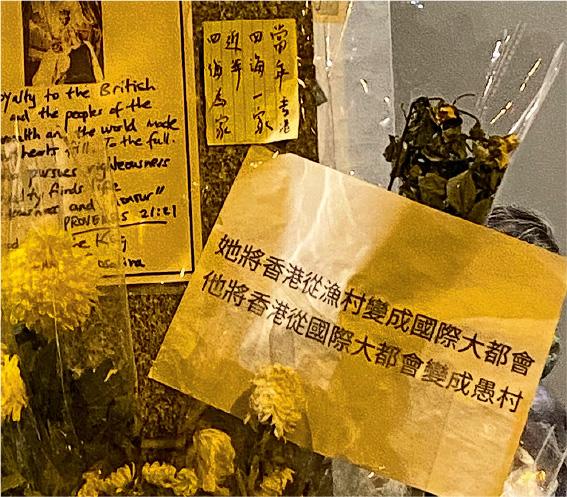 oyalty to the British
and the peoples of the
wealth and the world made
hearts fill to the full.
pursues righteousness
alty finds life
ousness and honour"
PROVERBS 21:21
當年香港
四海一家
近年
四海為家
她將香港從漁村變成國際大都會
他將香港從國際大都會變成愚村